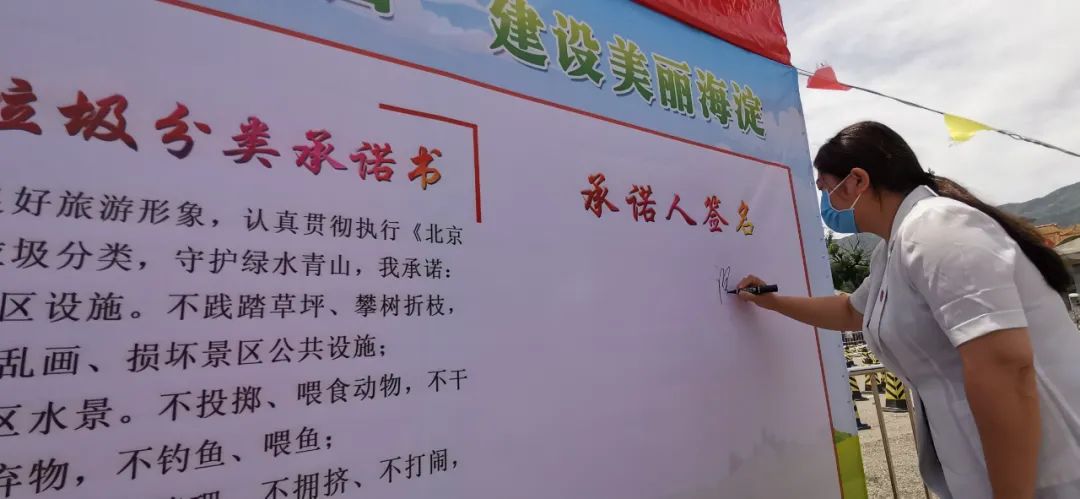 建设美丽海淀
垃圾分类承诺书
好旅游形象，认真贯彻执行《北京
圾分类，守护绿水青山，我承诺：
区设施。不践踏草坪、攀树折枝，
乱画、损坏景区公共设施；
区水景。不投掷、喂食动物，不干
弃物，不钓鱼、喂鱼；
不拥挤、不打闹，
承诺人签名